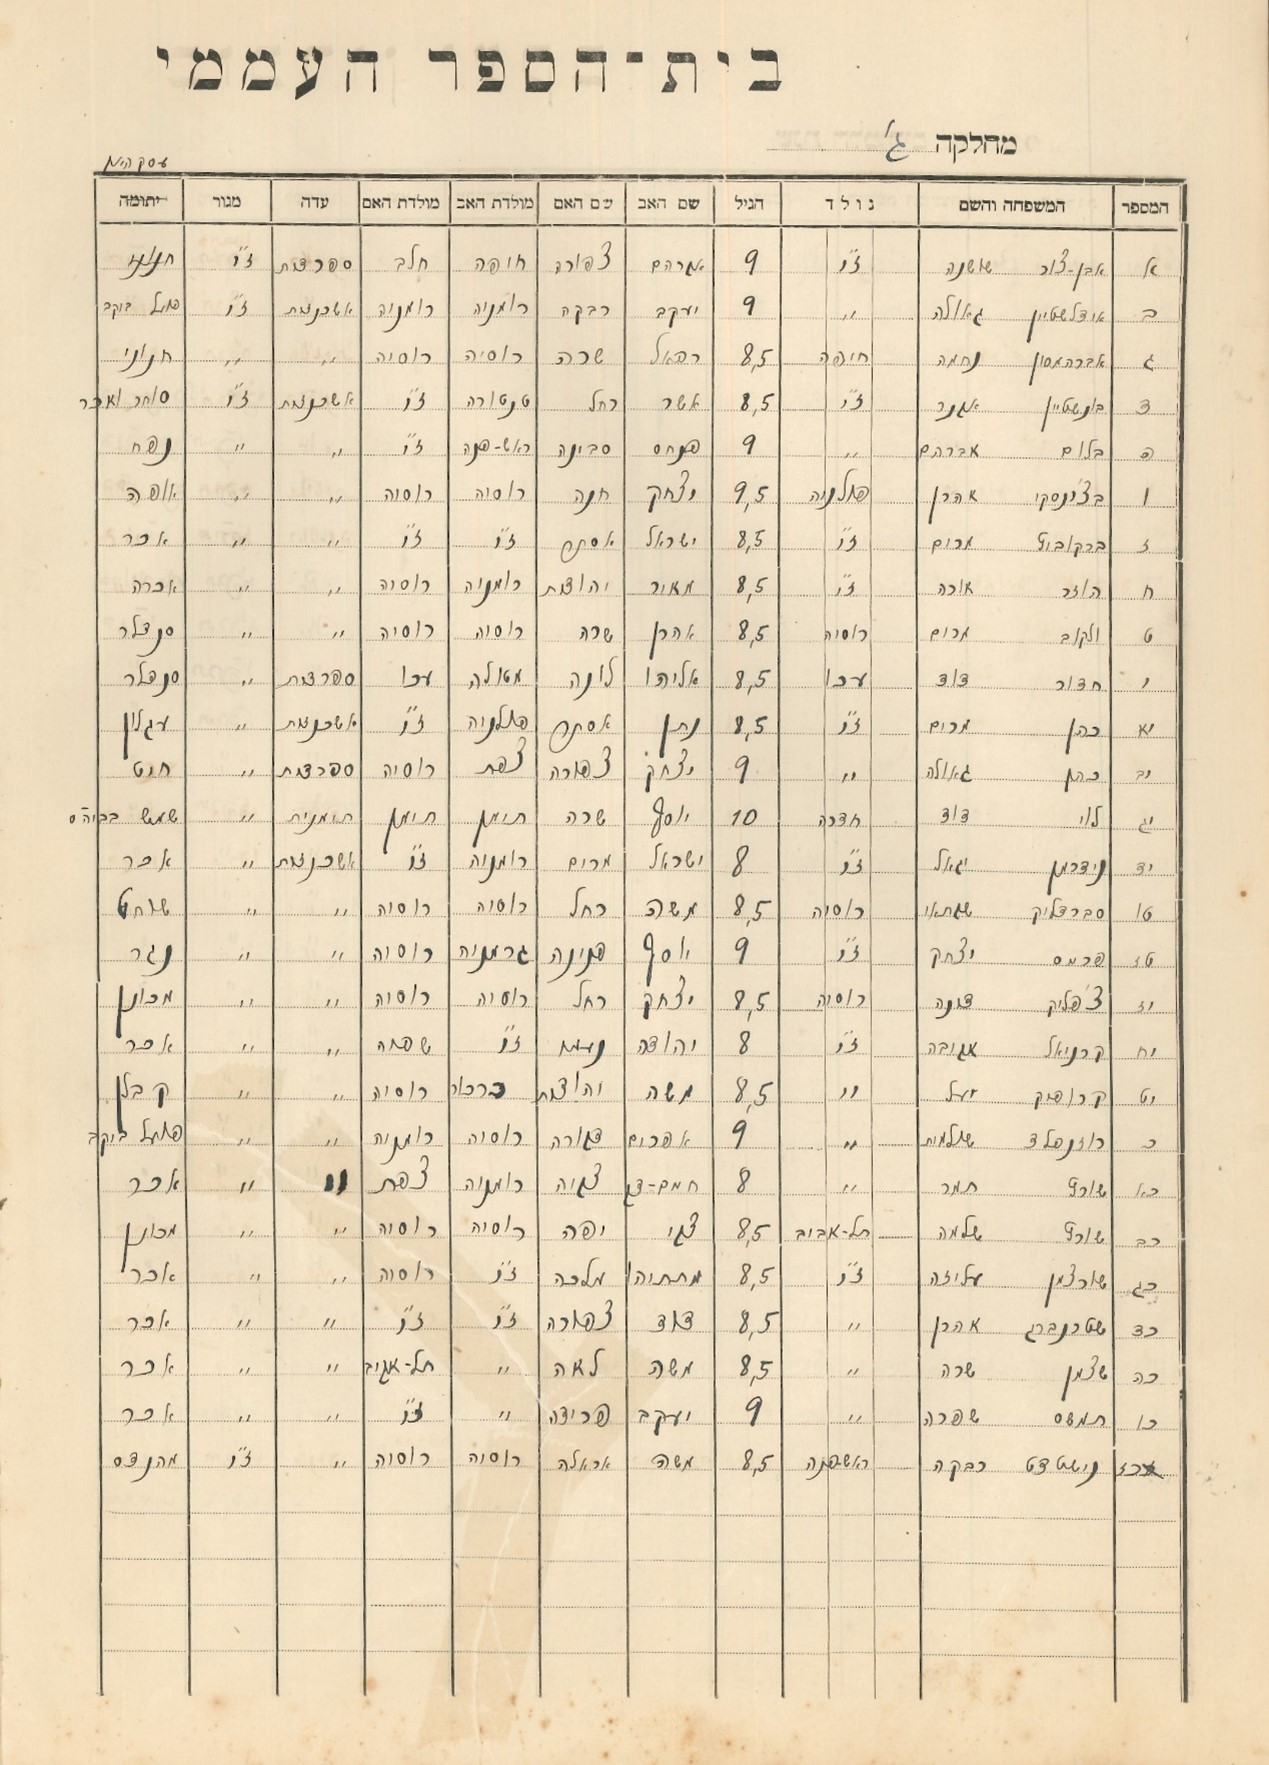 בית־הספר העממי
מחלקה ג'
עסק הים
המספר המשפחה והשם נולד הגיל שם האב שם האם מולדת האב מולדת האם עדה מגור יתומה
א אבן-צור שושנה ז"י 9 אברהם צפורה חיפה חלב ספרדית ז"י חנוני
ב אידלשטיין גאולה " 9 יעקב רבקה רומניה רומניה אשכנזית ז"י פועל בוקב
ג אברהמסון נחמה חיפה 8,5 רפאל שרה רוסיה רוסיה " " חנוני
ד אבנר ז"י 8,5 אשר רחל טנטורה ז"י אשכנזית ז"י סוחר ואכר
ה בלום אברהם " 9 פנחס סבינה ראש-פנה ז"י " " נפח
ו בצ'ינסקי אהרן פולניה 9,5 יצחק חנה רוסיה רוסיה " " אופה
ז ברקוביץ מרים ז"י 8,5 ישראל אסתר ז"י ז"י " " אכר
ח הוזר אורה ז"י 8,5 מאיר יהודית רומניה רוסיה " " אכרה
ט ולקוב מרים רוסיה 8,5 אהרן שרה רוסיה רוסיה " " סנדלר
י חדור דוד עכו 8,5 אליהו לונה מטולה עכו ספרדית " סנדלר
יא כהן מרים ז"י 8,5 נתן אסתר פולניה ז"י אשכנזית " עגלון
יב כהן גאולה " 9 יצחק צפורה צפת רוסיה ספרדית " חיט
יג לוי דוד חדרה 10 יוסף שרה תימן תימן תימנית " שמש בביה"ס
יד נידרמן יגאל ז"י 8 ישראל מרים רומניה ז"י אשכנזית " אכר
טו סברדליק שבתאי רוסיה 8,5 משה רחל רוסיה רוסיה " " שוחט
טז פרמס יצחק ז"י 9 יוסף פנינה גרמניה רוסיה " " נגר
יז צ'פליק דינה רוסיה 8,5 יצחק רחל רוסיה רוסיה " " מכונן
יח קרניאל אביבה ז"י 8 יהודה נעמי ז"י שפיה " " אכר
יט קרופיק יעל " 8,5 משה יהודית כרכור רוסיה " " קבלן
כ רוזנפלד שולמית " 9 אפרים דבורה רוסיה רומניה " " פועל בוקב
כא שורץ תמר " 8 חיים-דב צביה רומניה צפת " " אכר
כב שורץ שלמה תל-אביב 8,5 צבי יפה רוסיה רוסיה " " מכונן
כג שורצמן עליזה ז"י 8,5 מתתיהו מלכה ז"י רוסיה " " אכר
כד שטרנברג אהרן " 8,5 דוד צפורה ז"י ז"י " " אכר
כה שצמן שרה " 8,5 משה לאה " תל-אביב " " אכר
כו תמשס שפרה " 9 יעקב פרידה " ז"י " " אכר
כז נישטדט רבקה ראש-פנה 8,5 משה אראלה רוסיה רוסיה " ז"י מהנדס